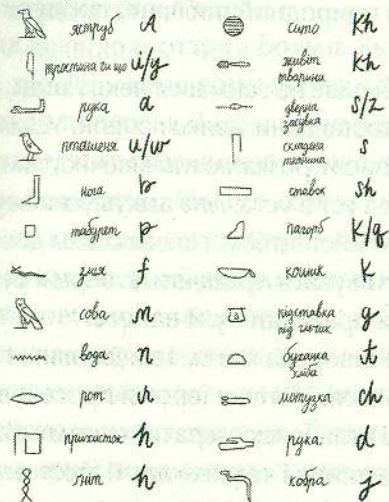 яструб A
тростина чи що i/y
рука a
пташеня u/w
нога b
табурет p
змія f
сова m
вода n
рот r
прихисток h
гніт h
сито Kh
живіт
тварини Kh
дверна
засувка s/z
складена
тканина s
ставок sh
пагорб k/q
кошик k
підставка
під глечик g
буханка
хліба t
мотузка ch
рука d
кобра j